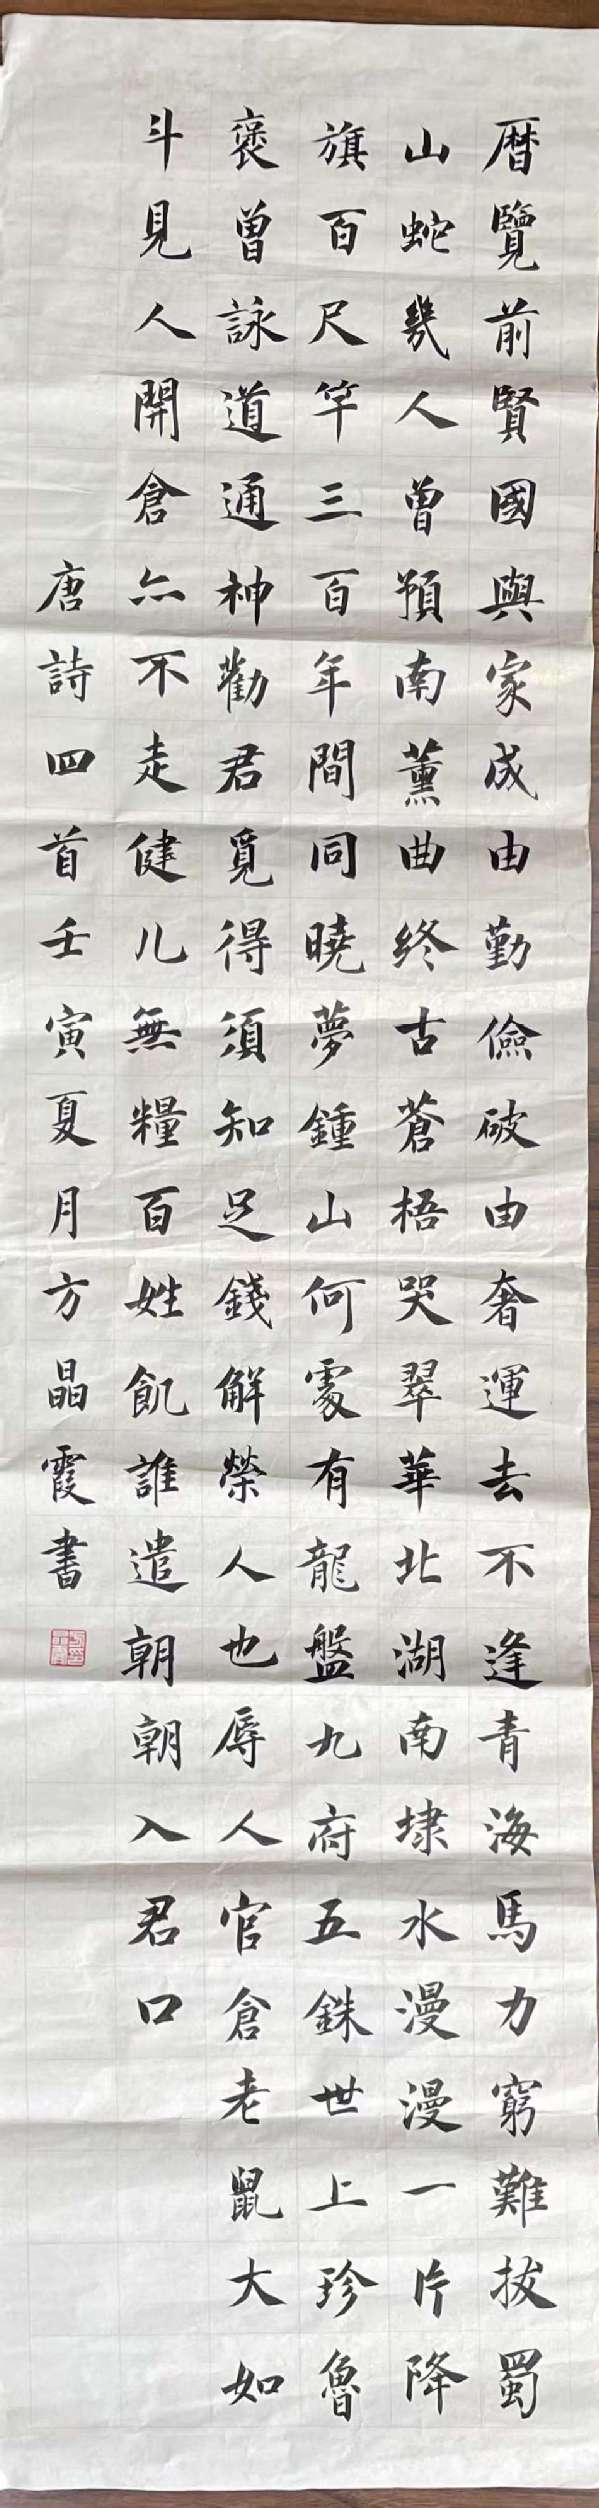 暦覽前賢國與家成由勤儉破由奢運去不逢青海馬力窮難拔蜀
山蛇幾人曾預南薰曲終古蒼梧哭翠華北湖南埭水漫漫一片降
旗百尺竿三百年間同曉夢鍾山何處有龍盤九府五銖世上珍魯
褒曾詠道通神勸君覓得須知足錢解榮人也辱人官倉老鼠大如
斗見人開倉亦不走健儿無糧百姓飢誰遣朝朝入君口
唐詩四首壬寅夏月方晶霞書